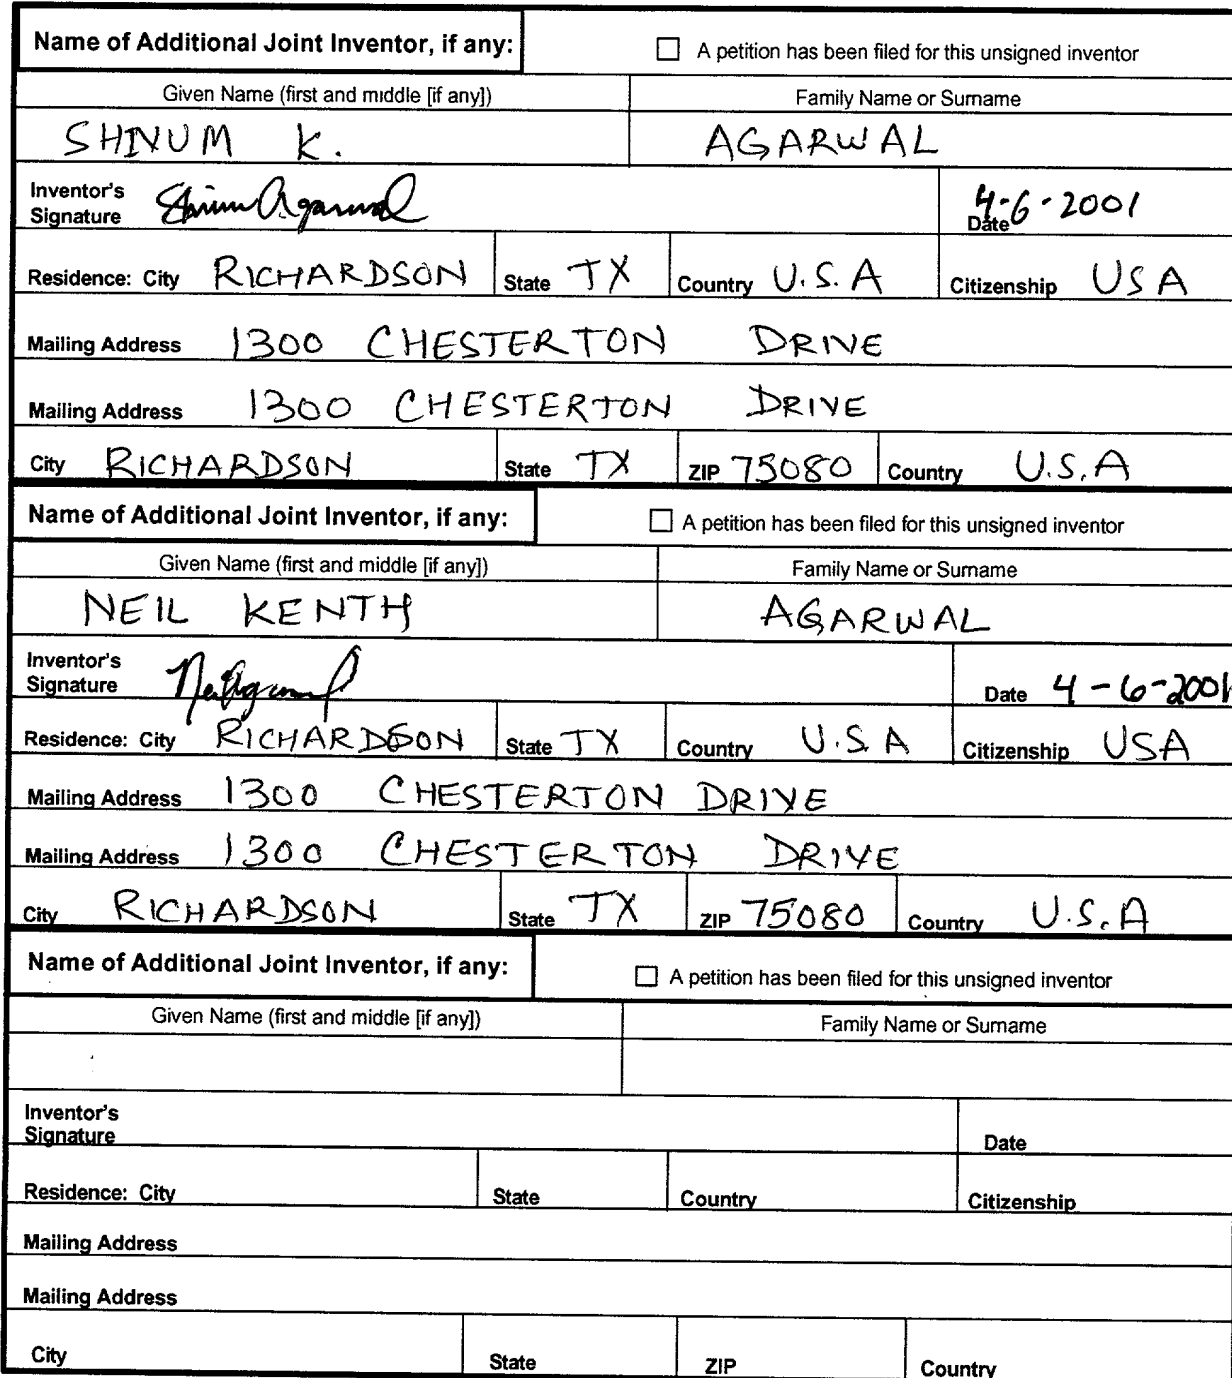 Name of Additional Joint Inventor, if any: ☐ A petition has been filed for this unsigned inventor
Given Name (first and middle [if any]) Family Name or Surname
SHINUM K. AGARWAL
Inventor's
Signature Shinum Agarwal Date 4-6-2001
Residence: City RICHARDSON State TX Country U.S.A Citizenship USA
Mailing Address 1300 CHESTERTON DRIVE
Mailing Address 1300 CHESTERTON DRIVE
City RICHARDSON State TX ZIP 75080 Country U.S.A
Name of Additional Joint Inventor, if any: ☐ A petition has been filed for this unsigned inventor
Given Name (first and middle [if any]) Family Name or Surname
NEIL KENTH AGARWAL
Inventor's
Signature Neil Agarwal Date 4-6-2001
Residence: City RICHARDSON State TX Country U.S.A Citizenship USA
Mailing Address 1300 CHESTERTON DRIVE
Mailing Address 1300 CHESTERTON DRIVE
City RICHARDSON State TX ZIP 75080 Country U.S.A
Name of Additional Joint Inventor, if any: ☐ A petition has been filed for this unsigned inventor
Given Name (first and middle [if any]) Family Name or Surname
Inventor's
Signature Date
Residence: City State Country Citizenship
Mailing Address
Mailing Address
City State ZIP Country